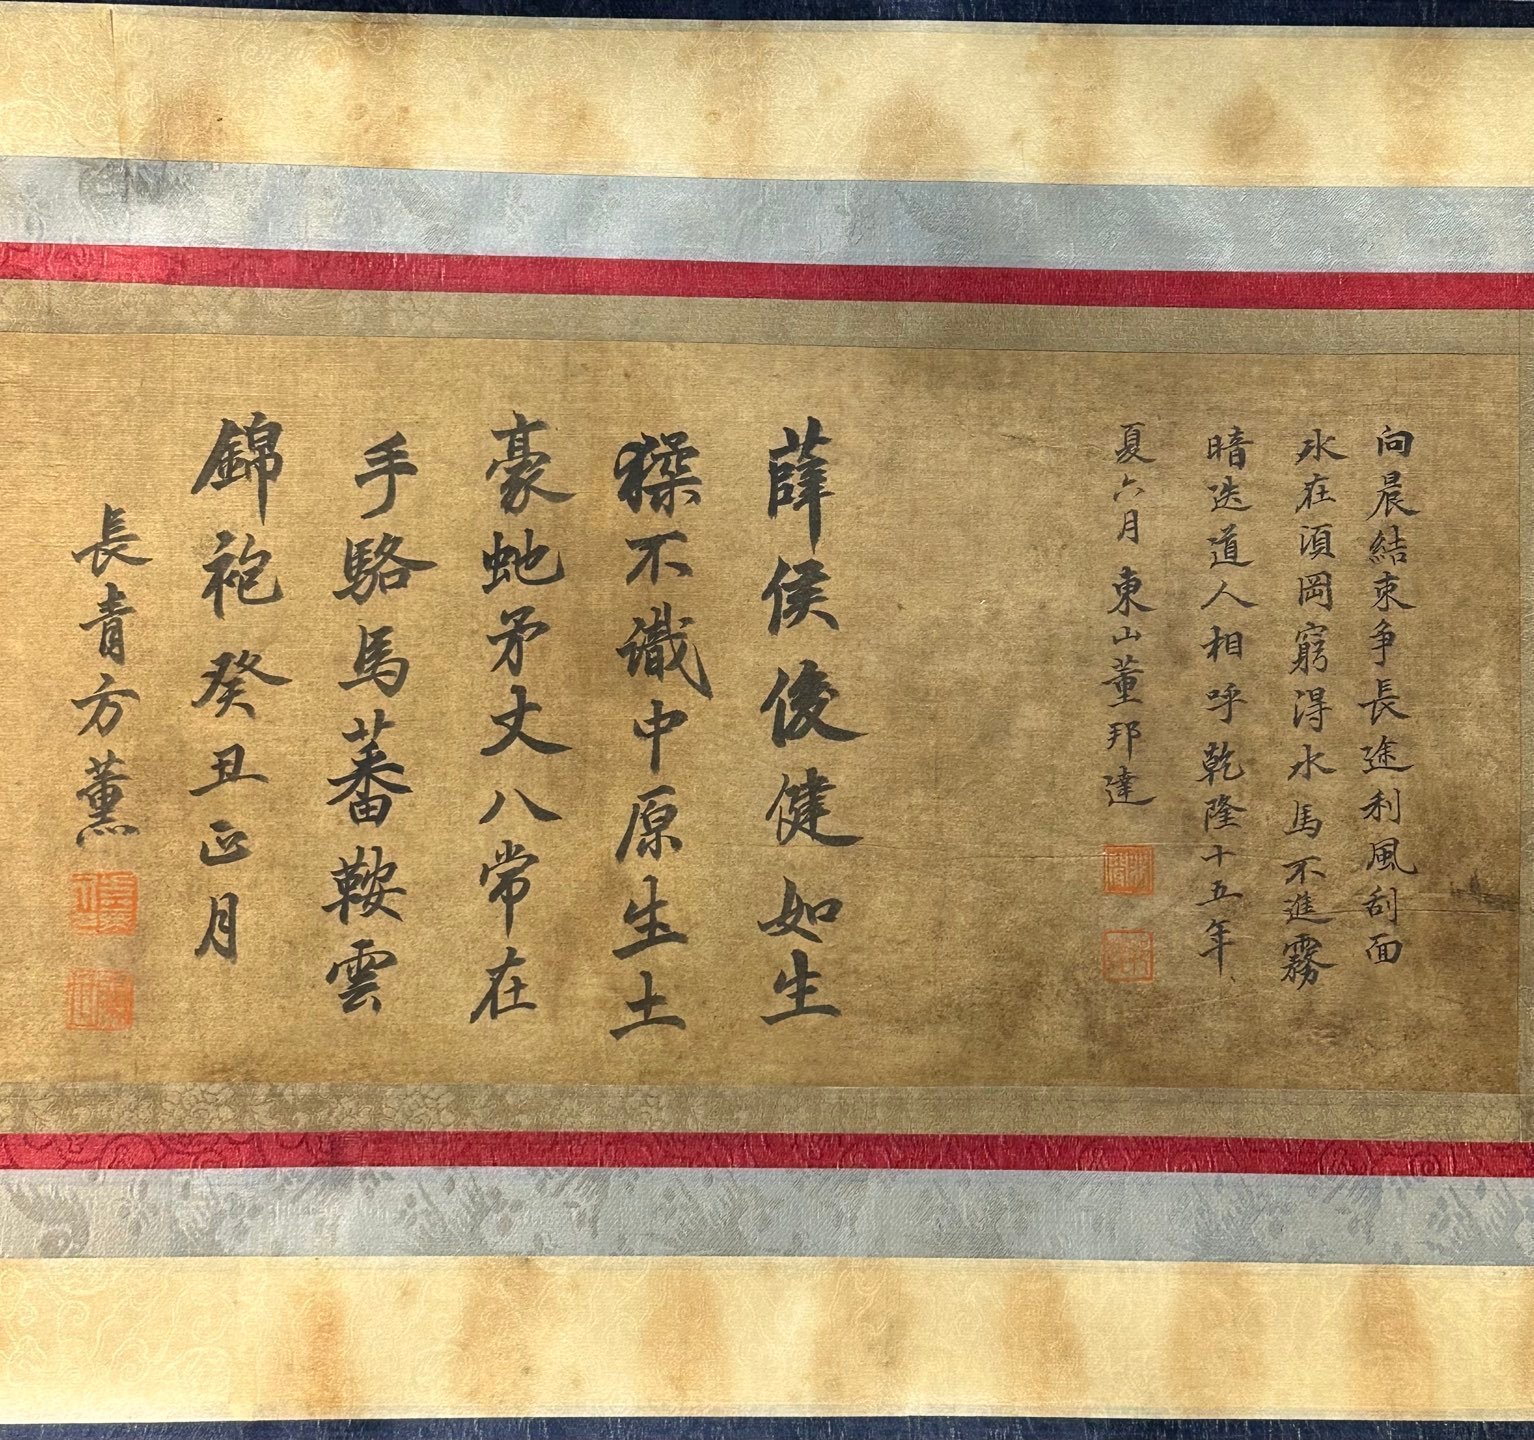 向晨結束爭長途利風刮面
水在湏岡窮得水馬不進霧
暗迭道人相呼乾隆十五年
夏六月東山董邦達
薛侯俊健如生
猱不識中原生土
豪虵矛丈八常在
手駱馬蕃鞍雲
錦袍癸丑正月
長青方薰